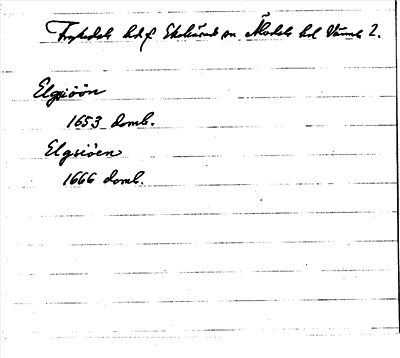 Fryksdals hd f Ekshärad sn Älvdals hd Värml 2.
Elgsiöön
1653 domb.
Elgsiöen
1666 domb.